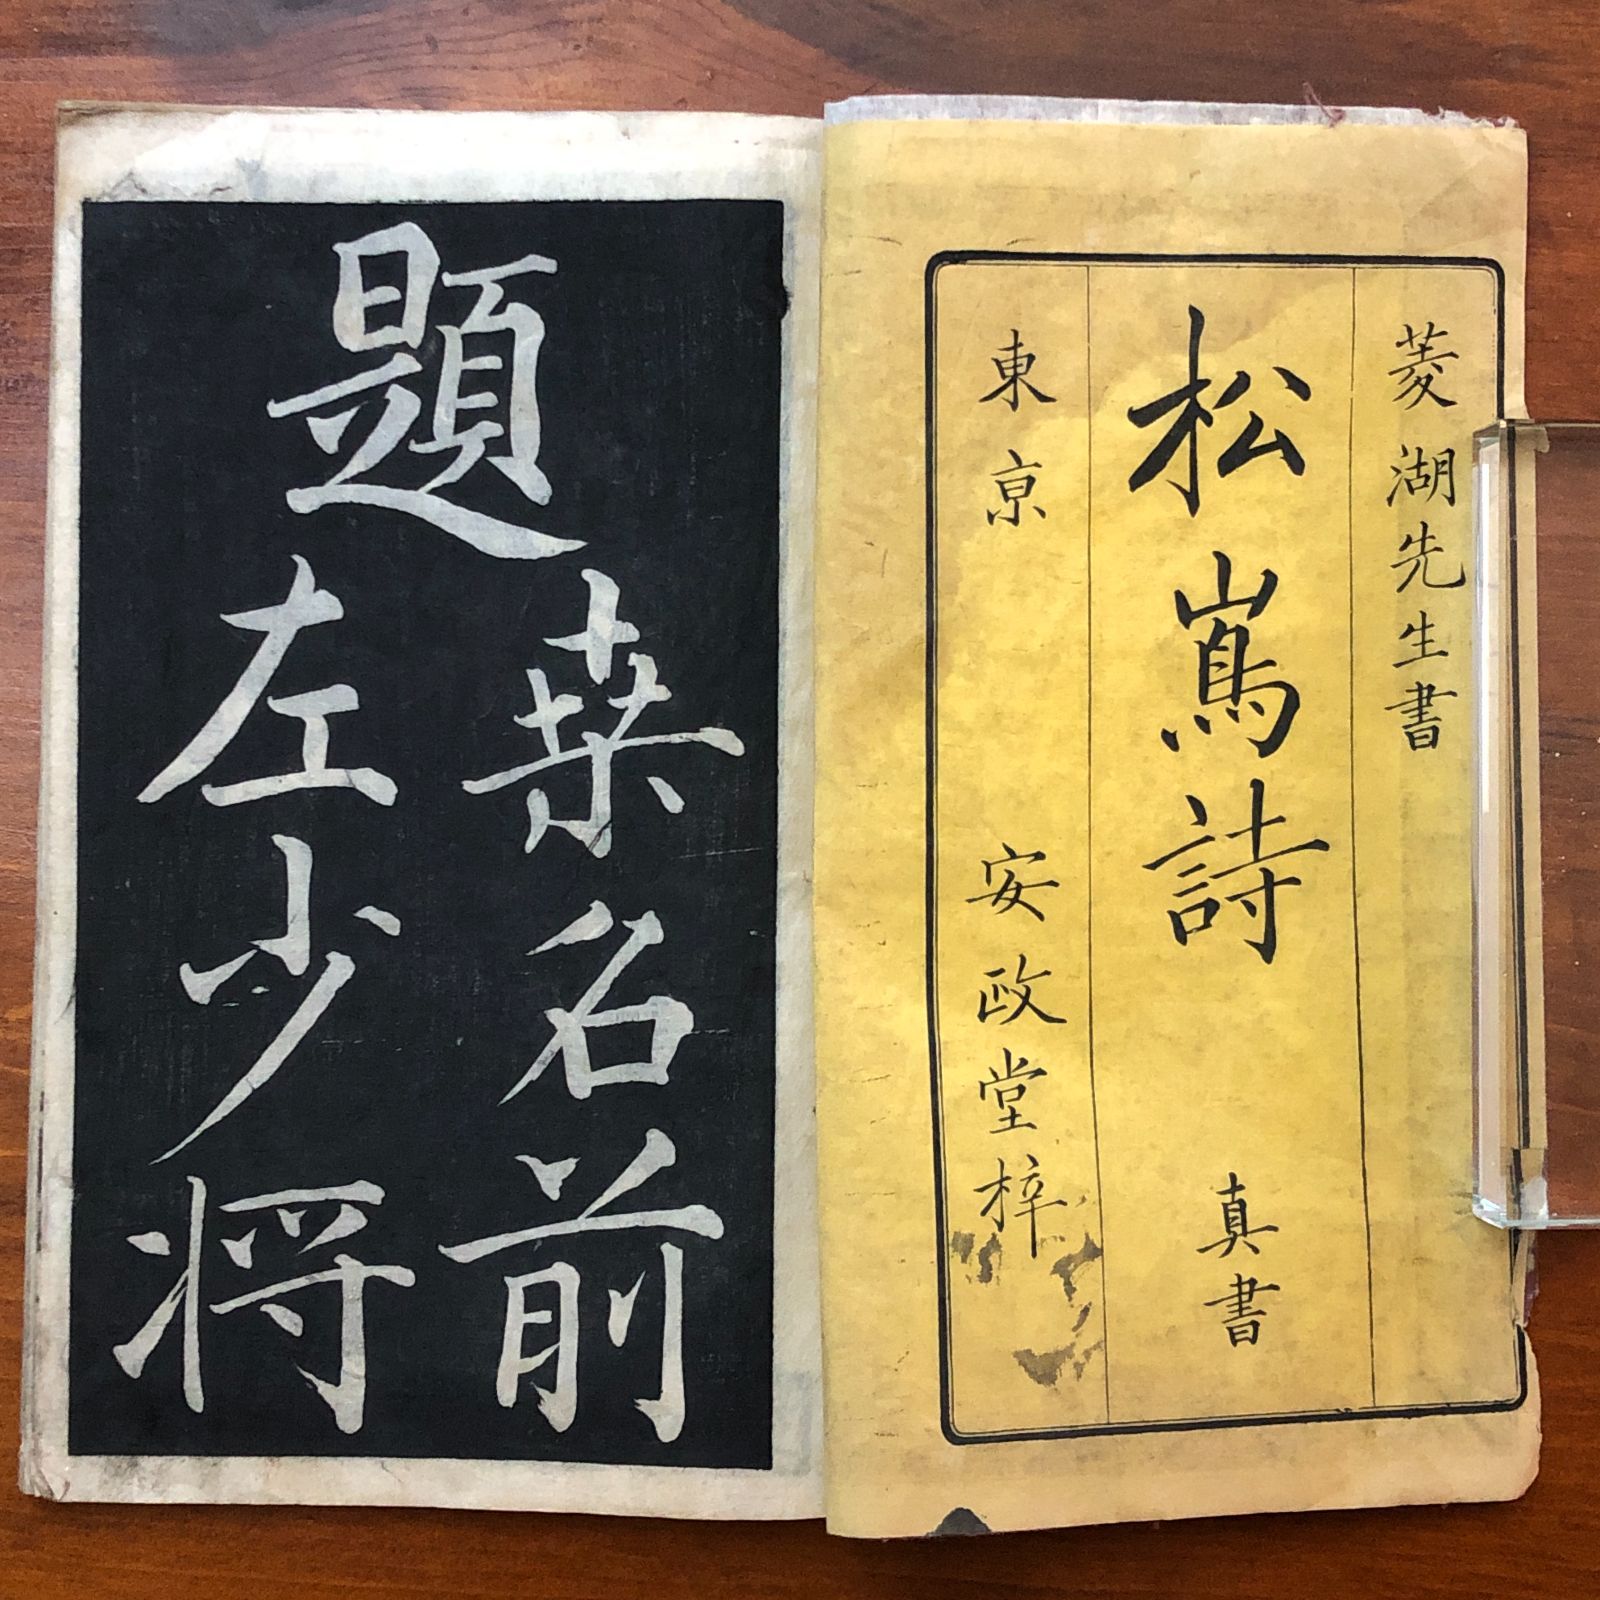 菱湖先生書
松嶌詩 真書
東京 安政堂梓
題
桒名前
左少将